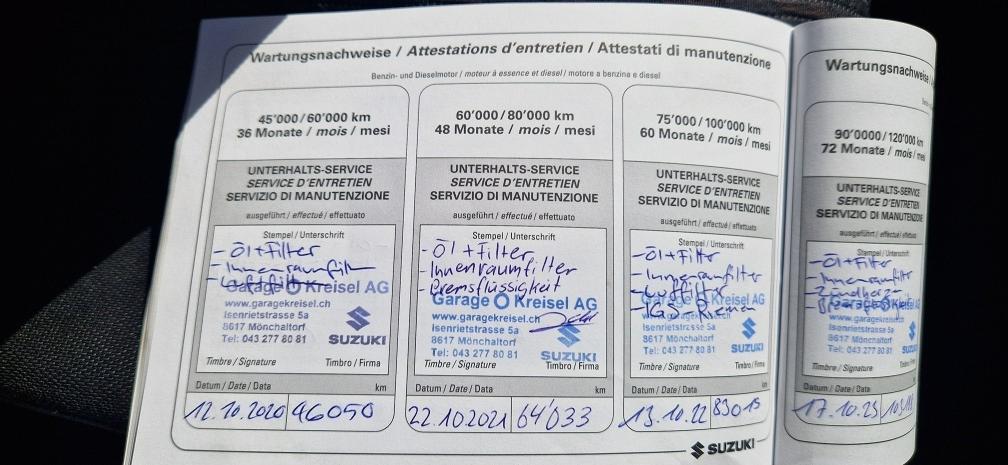 Wartungsnachweise / Attestations d'entretien / Attestati di manutenzione
Benzin- und Dieselmotor / moteur à essence et diesel / motore a benzina e diesel
45'000/60'000 km
36 Monate / mois / mesi
UNTERHALTS-SERVICE
SERVICE D'ENTRETIEN
SERVIZIO DI MANUTENZIONE
ausgeführt / effectué / effettuato
Stempel / Unterschrift
- Öl + Filter
- Innenraumfilter
- Luftfilter
Garage Kreisel AG
www.garagekreisel.ch
Isenrietstrasse 5a
8617 Mönchaltorf
Tel: 043 277 80 81
SUZUKI
Timbre / Signature Timbro / Firma
Datum / Date / Data km
12.10.2020 46050
60'000/80'000 km
48 Monate / mois / mesi
UNTERHALTS-SERVICE
SERVICE D'ENTRETIEN
SERVIZIO DI MANUTENZIONE
ausgeführt / effectué / effettuato
Stempel / Unterschrift
- Öl + Filter
- Innenraumfilter
- Bremsflüssigkeit
Garage Kreisel AG
www.garagekreisel.ch
Isenrietstrasse 5a
8617 Mönchaltorf
Tel: 043 277 80 81
SUZUKI
Timbre / Signature Timbro / Firma
Datum / Date / Data km
22.10.2021 64'033
75'000/100'000 km
60 Monate / mois / mesi
UNTERHALTS-SERVICE
SERVICE D'ENTRETIEN
SERVIZIO DI MANUTENZIONE
ausgeführt / effectué / effettuato
Stempel / Unterschrift
- Öl + Filter
- Innenraumfilter
- Luftfilter
Garage Kreisel AG
www.garagekreisel.ch
Isenrietstrasse 5a
8617 Mönchaltorf
Tel: 043 277 80 81
SUZUKI
Timbre / Signature Timbro / Firma
Datum / Date / Data km
13.10.22 83015
SUZUKI
Wartungsnachweise /
90'0000/120'000 km
72 Monate / mois / mesi
UNTERHALTS-SERVICE
SERVICE D'ENTRETIEN
SERVIZIO DI MANUTENZIONE
ausgeführt / effectué / effettuato
Stempel / Unterschrift
- Öl + Filter
- Innenraumfilter
www.garagekreisel.ch
Isenrietstrasse 5a
8617 Mönchaltorf
Tel: 043 277 80 81
Timbre / Signature
Datum / Date / Data
17.10.23